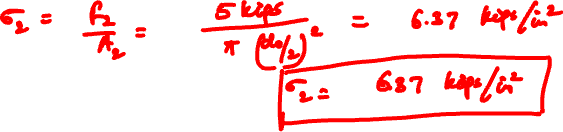 σ₂ = P₂/A₂ = 5 kips/π (do/2)² = 6.37 kips/in²
σ₂ = 6.37 kips/in²